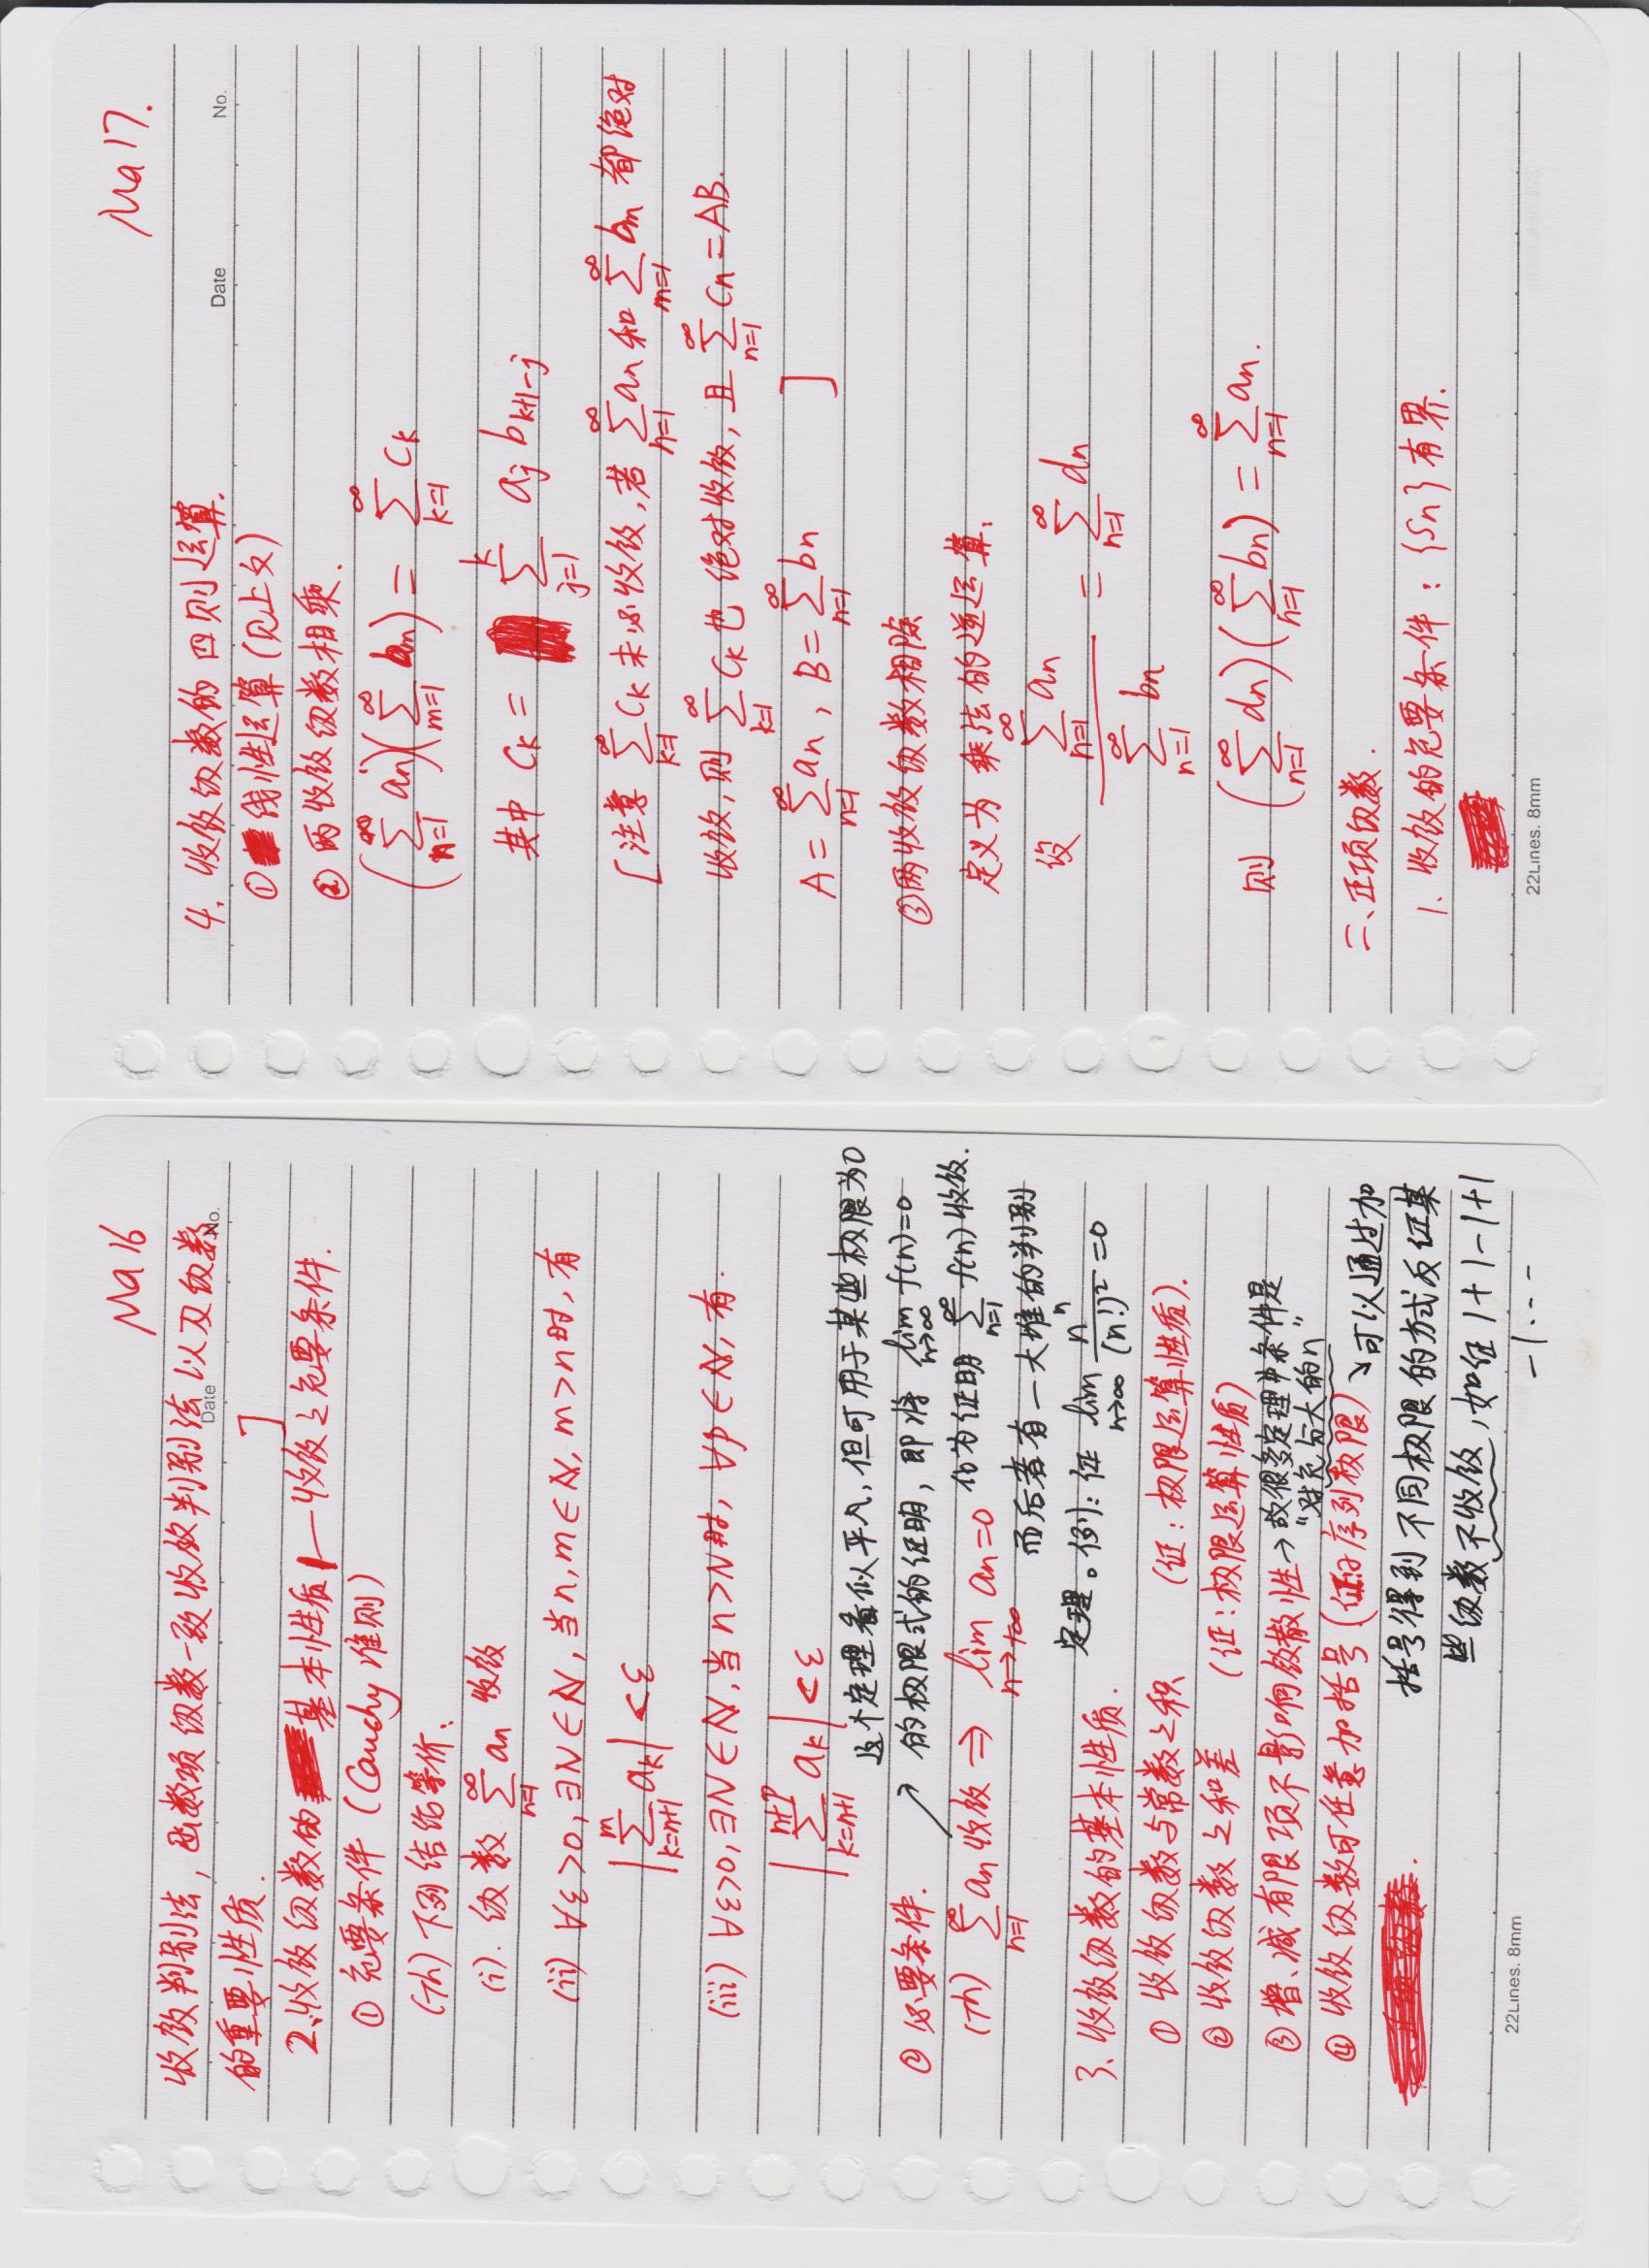 Ma 16
收敛判别法, 函数项级数一致收敛判别法以及级数
Date No.
的重要性质. ]
2、收敛级数的 基本性质 — 收敛之充要条件.
① 充要条件 (Cauchy 准则)
(Th) 下列结论等价:
(i). 级数 ∑_{n=1}^{∞} an 收敛
(ii) ∀ε>0, ∃N∈ℕ, 当n,m∈ℕ, m>n时, 有
|∑_{k=n+1}^{m} ak| <ε
(iii) ∀ε>0, ∃N∈ℕ, 当n>N时, ∀p∈ℕ, 有.
|∑_{k=n+1}^{n+p} ak| <ε
这个定理看似平凡, 但可用于某些极限为0
的极限式的证明, 即将 lim_{n→∞} f(n)=0
化为证明 ∑_{n=1}^{∞} f(n) 收敛.
而后者有一大堆的判别
定理。例: 证 lim_{n→∞} n^n/(n!)^2 =0
② 必要条件.
(Th) ∑_{n=1}^{∞} an 收敛 ⇒ lim_{n→+∞} an=0
3、收敛级数的基本性质.
① 收敛级数与常数之积 (证: 极限运算性质).
② 收敛级数之和差 (证: 极限运算性质)
③ 增、减有限项不影响敛散性 → 故很多定理中条件是
"对充分大的n"
④ 收敛级数可任意加括号 (证: 子序列极限) ↘ 可以通过加
括号得到不同极限的方式反证某
些级数不收敛, 如证 1+1-1+1
-1...
22Lines. 8mm
Ma 17.
4. 收敛级数的四则运算.
Date No.
① 线性运算 (见上文)
② 两收敛级数相乘.
(∑_{n=1}^{∞} an)(∑_{m=1}^{∞} bm) = ∑_{k=1}^{∞} Ck
其中 Ck = ∑_{j=1}^{k} aj b_{k+1-j}
[注意 ∑_{k=1}^{∞} Ck 未必收敛, 若 ∑_{n=1}^{∞} an 和 ∑_{m=1}^{∞} bm 都绝对
收敛, 则 ∑_{k=1}^{∞} Ck 也绝对收敛, 且 ∑_{n=1}^{∞} Cn = AB.
A = ∑_{n=1}^{∞} an, B = ∑_{n=1}^{∞} bn ]
③ 两收敛级数相除
定义为乘法的逆运算.
设 ∑_{n=1}^{∞} an / ∑_{n=1}^{∞} bn = ∑_{n=1}^{∞} dn
则 (∑_{n=1}^{∞} dn)(∑_{n=1}^{∞} bn) = ∑_{n=1}^{∞} an.
二、正项级数.
1. 收敛的充要条件: {Sn} 有界.
22Lines. 8mm